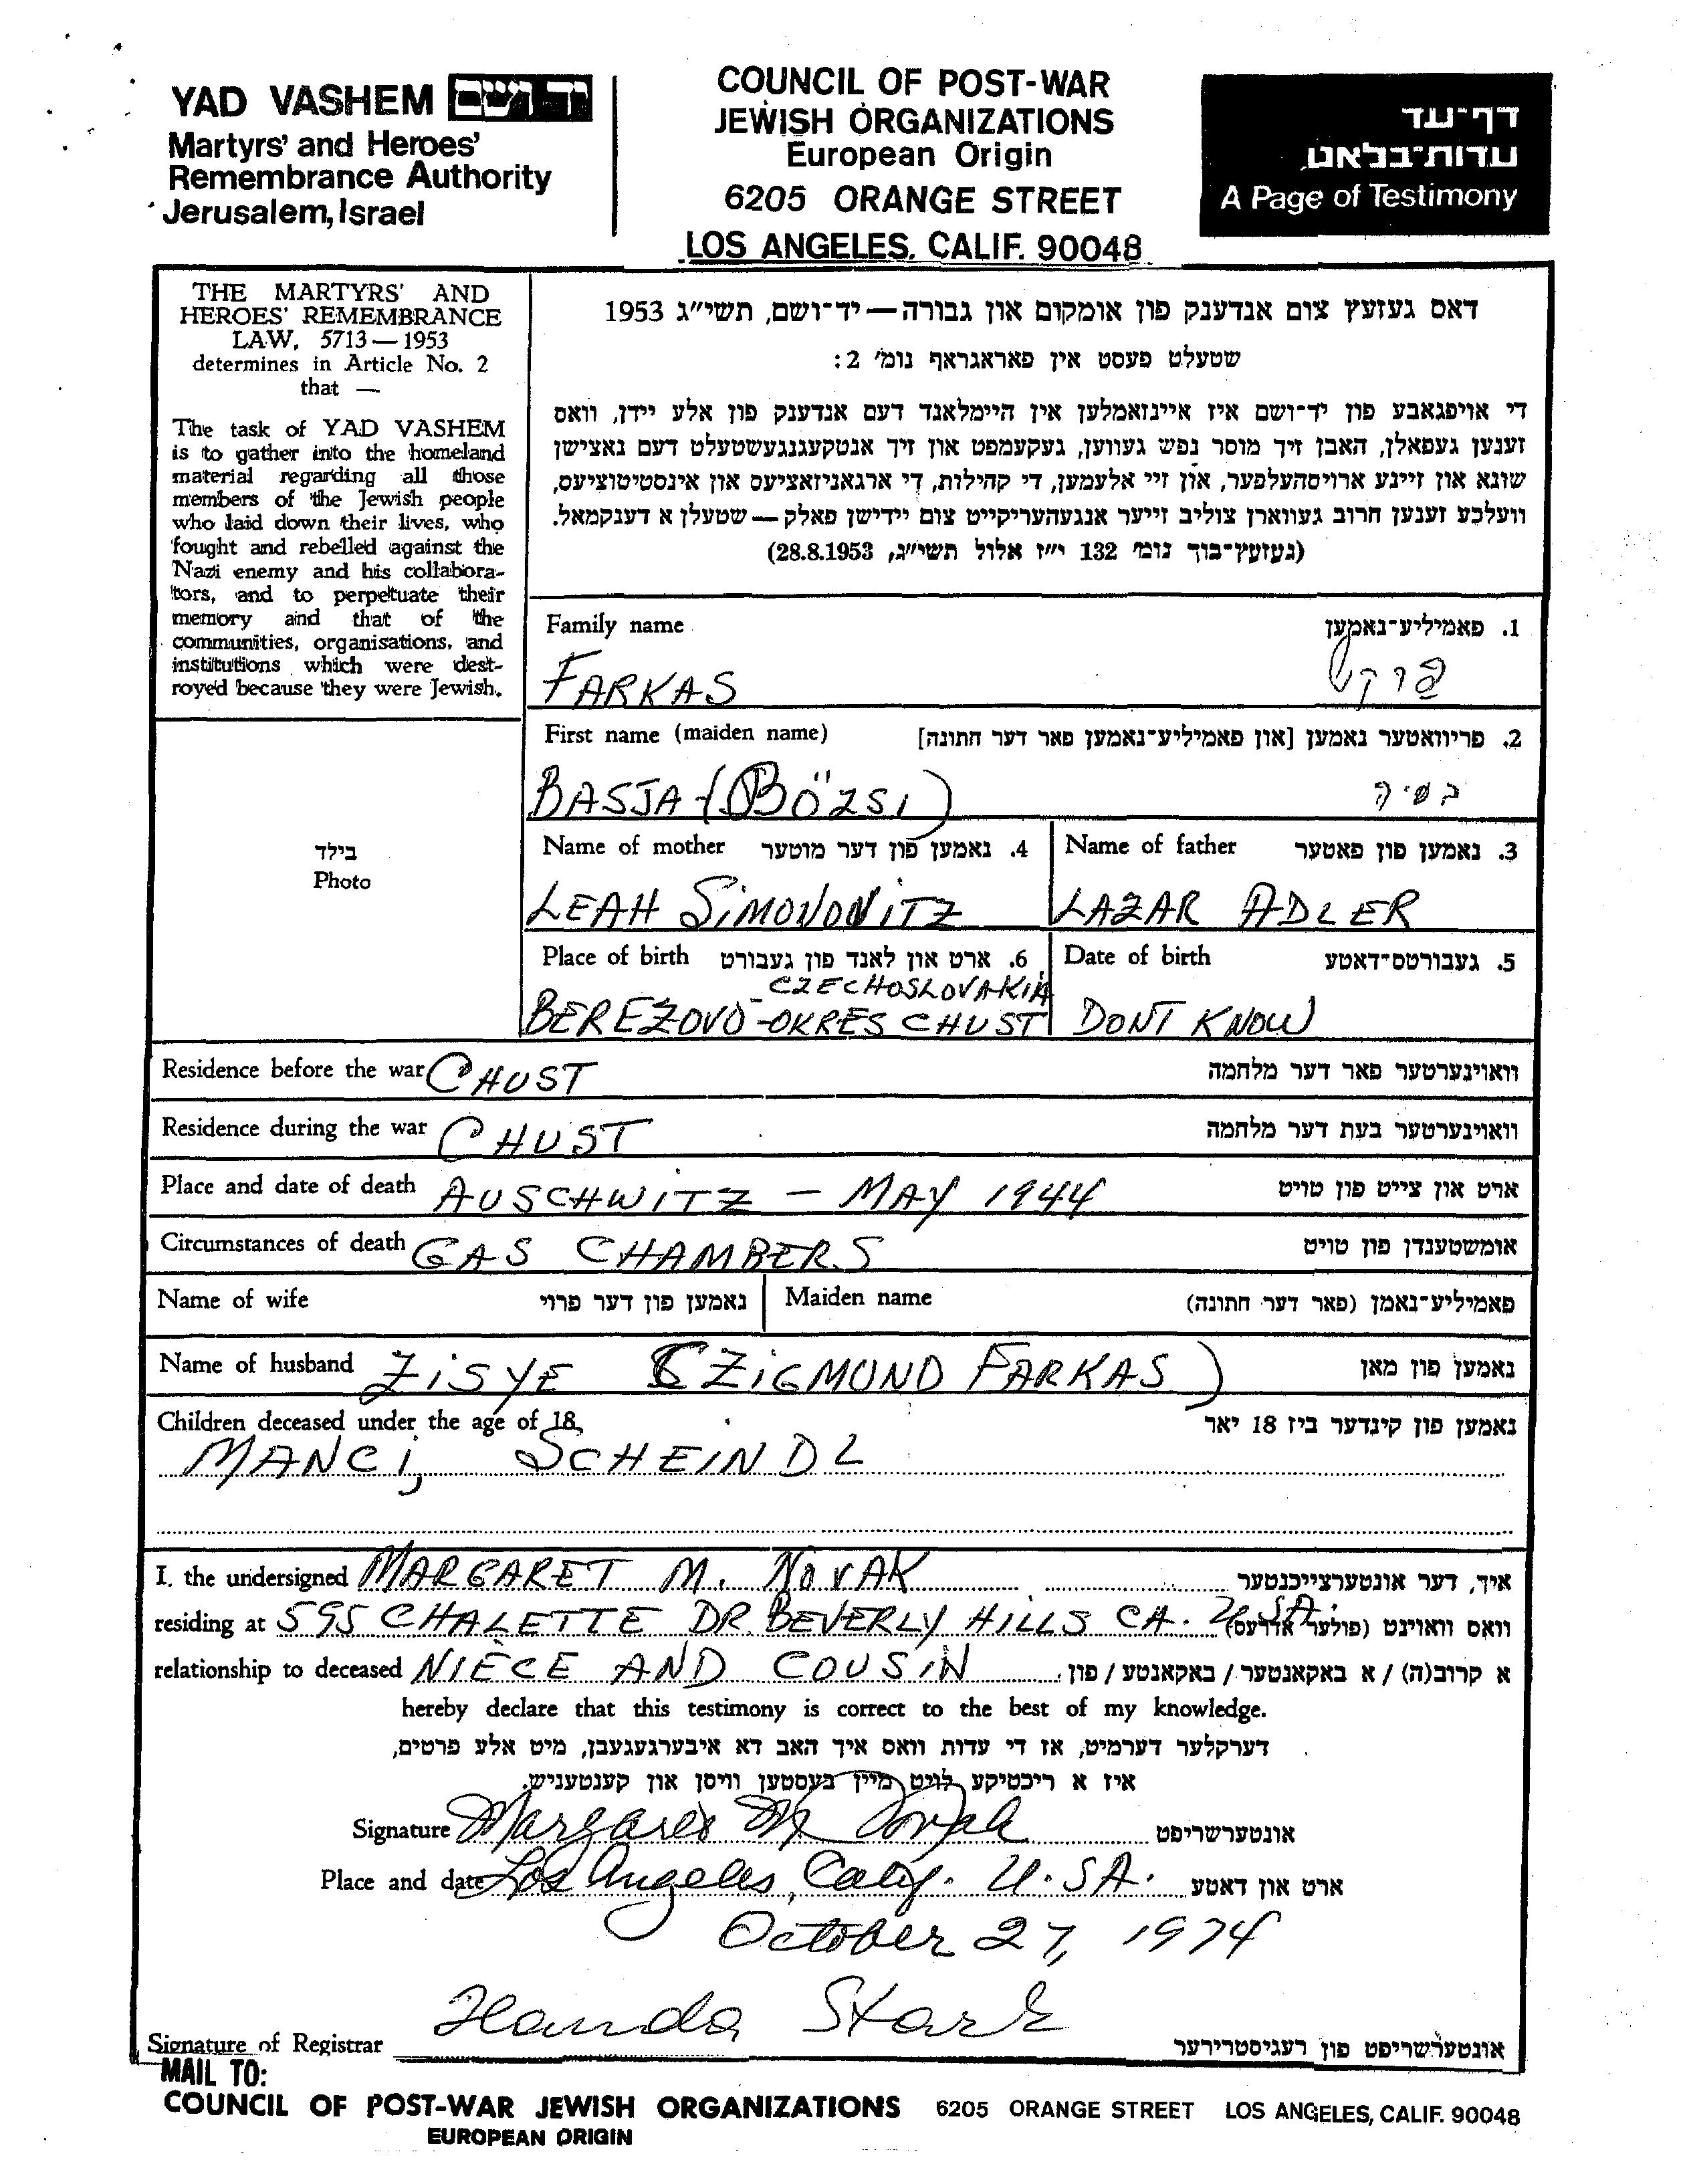 YAD VASHEM יד ושם
Martyrs' and Heroes'
Remembrance Authority
Jerusalem, Israel
COUNCIL OF POST-WAR
JEWISH ORGANIZATIONS
European Origin
6205 ORANGE STREET
LOS ANGELES, CALIF. 90048
דף־עד
עדות־בלאט
A Page of Testimony
THE MARTYRS' AND
HEROES' REMEMBRANCE
LAW, 5713—1953
determines in Article No. 2
that —
The task of YAD VASHEM
is to gather into the homeland
material regarding all those
members of the Jewish people
who laid down their lives, who
fought and rebelled against the
Nazi enemy and his collabora-
tors, and to perpetuate their
memory and that of the
communities, organisations, and
institutions which were dest-
royed because they were Jewish.
דאס געזעץ צום אנדענק פון אומקום און גבורה — יד־ושם, תשי״ג 1953
שטעלט פעסט אין פאראגראף נומ׳ 2:
די אויפגאבע פון יד־ושם איז איינזאמלען אין היימלאנד דעם אנדענק פון אלע יידן, וואס
זענען געפאלן, האבן זיך מוסר נפש געווען, געקעמפט און זיך אנטקעגנגעשטעלט דעם נאצישן
שונא און זיינע ארויסהעלפער, און זיי אלעמען, די קהילות, די ארגאניזאציעס און אינסטיטוציעס,
וועלכע זענען חרוב געווארן צוליב זייער אנגעהעריקייט צום יידישן פאלק — שטעלן א דענקמאל.
(געזעץ־בוך נומ׳ 132 י״ז אלול תשי״ג, 28.8.1953)
בילד
Photo
Family name 1. פאמיליע־נאמען
FARKAS פרקש
First name (maiden name) 2. פריוואטער נאמען [און פאמיליע־נאמען פאר דער חתונה]
BASJA (BÖZSI) בסיה
Name of mother 4. נאמען פון דער מוטער Name of father 3. נאמען פון פאטער
LEAH SIMONOVITZ LAZAR ADLER
Place of birth 6. ארט און לאנד פון געבורט Date of birth 5. געבורטס־דאטע
- CZECHOSLOVAKIA
BEREZOVO-OKRES CHUST DONT KNOW
Residence before the war CHUST וואוינערטער פאר דער מלחמה
Residence during the war CHUST וואוינערטער בעת דער מלחמה
Place and date of death AUSCHWITZ - MAY 1944 ארט און צייט פון טויט
Circumstances of death GAS CHAMBERS אומשטענדן פון טויט
Name of wife נאמען פון דער פרוי Maiden name פאמיליע־נאמן (פאר דער חתונה)
Name of husband ZISYE (ZIGMUND FARKAS) נאמען פון מאן
Children deceased under the age of 18, נאמען פון קינדער ביז 18 יאר
MANCI, SCHEINDL
I, the undersigned MARGARET M. NOVAK איך, דער אונטערצייכנטער
residing at 595 CHALETTE DR. BEVERLY HILLS CA. U.SA. וואס וואוינט (פולער אדרעס)
relationship to deceased NIECE AND COUSIN א קרוב(ה) / א באקאנטער / באקאנטע / פון
hereby declare that this testimony is correct to the best of my knowledge.
דערקלער דערמיט, אז די עדות וואס איך האב דא איבערגעגעבן, מיט אלע פרטים,
איז א ריכטיקע לויט מיין בעסטען וויסן און קענטעניש.
Signature Margaret M Novak אונטערשריפט
Place and date Los Angeles, Calif. U.SA. ארט און דאטע
October 27, 1974
Handa Stark
Signature of Registrar אונטערשריפט פון רעגיסטרירער
MAIL TO:
COUNCIL OF POST-WAR JEWISH ORGANIZATIONS 6205 ORANGE STREET LOS ANGELES, CALIF. 90048
EUROPEAN ORIGIN